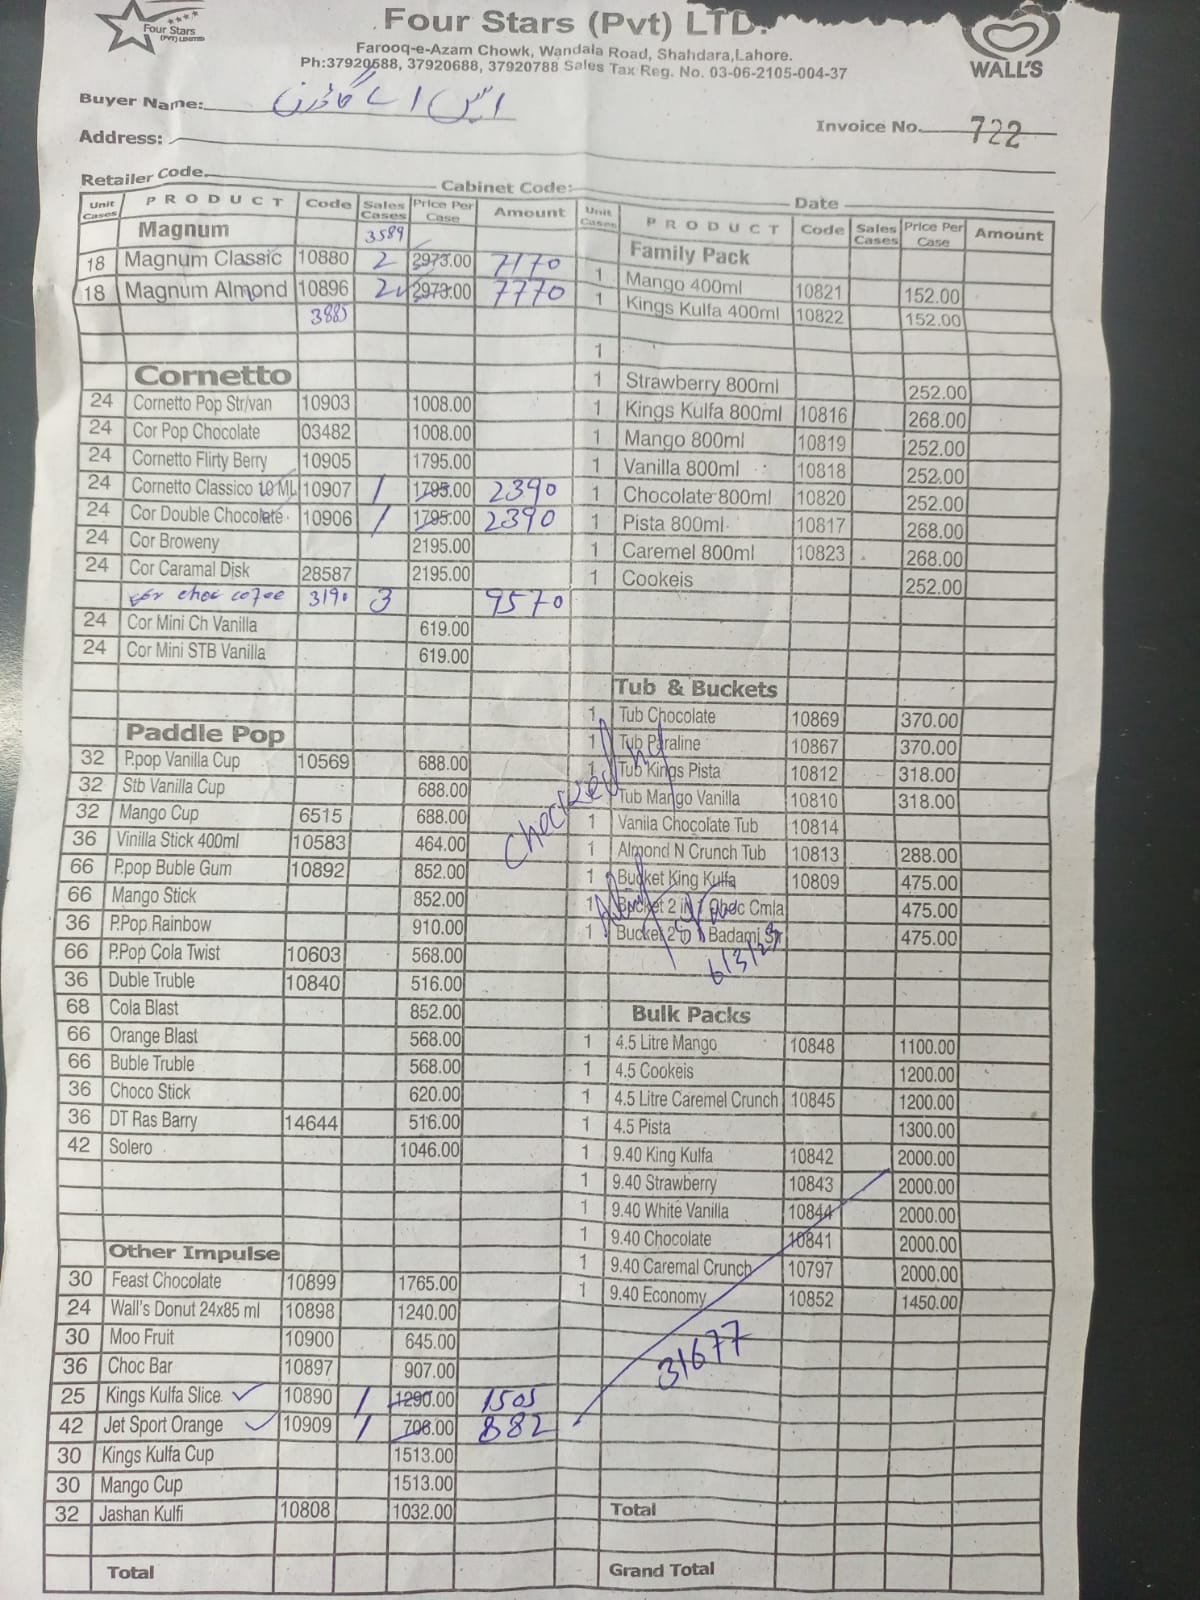 Four Stars
(PVT) LIMITED
Four Stars (Pvt) LTD.
Farooq-e-Azam Chowk, Wandala Road, Shahdara,Lahore.
Ph:37920588, 37920688, 37920788 Sales Tax Reg. No. 03-06-2105-004-37
WALL'S
Buyer Name: ایس اے گارڈن
Invoice No. 722
Address:
Retailer Code. Cabinet Code: Date
Unit Cases PRODUCT Code Sales Cases Price Per Case Amount
Magnum 3589
18 Magnum Classic 10880 2 2973.00 7170
18 Magnum Almond 10896 2 2973.00 7770
3885
Cornetto
24 Cornetto Pop Str/van 10903 1008.00
24 Cor Pop Chocolate 03482 1008.00
24 Cornetto Flirty Berry 10905 1795.00
24 Cornetto Classico 10 ML 10907 1 1795.00 2390
24 Cor Double Chocolate 10906 1 1795.00 2390
24 Cor Broweny 2195.00
24 Cor Caramal Disk 28587 2195.00
cor choc cofee 3190 3 9570
24 Cor Mini Ch Vanilla 619.00
24 Cor Mini STB Vanilla 619.00
Paddle Pop
32 P.pop Vanilla Cup 10569 688.00
32 Stb Vanilla Cup 688.00
32 Mango Cup 6515 688.00
36 Vinilla Stick 400ml 10583 464.00
66 P.pop Buble Gum 10892 852.00
66 Mango Stick 852.00
36 P.Pop Rainbow 910.00
66 P.Pop Cola Twist 10603 568.00
36 Duble Truble 10840 516.00
68 Cola Blast 852.00
66 Orange Blast 568.00
66 Buble Truble 568.00
36 Choco Stick 620.00
36 DT Ras Barry 14644 516.00
42 Solero 1046.00
Other Impulse
30 Feast Chocolate 10899 1765.00
24 Wall's Donut 24x85 ml 10898 1240.00
30 Moo Fruit 10900 645.00
36 Choc Bar 10897 907.00
25 Kings Kulfa Slice 10890 1 1290.00 1505
42 Jet Sport Orange 10909 1 706.00 882
30 Kings Kulfa Cup 1513.00
30 Mango Cup 1513.00
32 Jashan Kulfi 10808 1032.00
Total
Unit Cases PRODUCT Code Sales Cases Price Per Case Amount
Family Pack
1 Mango 400ml 10821 152.00
1 Kings Kulfa 400ml 10822 152.00
1
1 Strawberry 800ml 252.00
1 Kings Kulfa 800ml 10816 268.00
1 Mango 800ml 10819 252.00
1 Vanilla 800ml 10818 252.00
1 Chocolate 800ml 10820 252.00
1 Pista 800ml 10817 268.00
1 Caremel 800ml 10823 268.00
1 Cookeis 252.00
Tub & Buckets
1 Tub Chocolate 10869 370.00
1 Tub Paraline 10867 370.00
1 Tub Kings Pista 10812 318.00
Tub Mango Vanilla 10810 318.00
1 Vanila Chocolate Tub 10814
1 Almond N Crunch Tub 10813 288.00
1 Bucket King Kulfa 10809 475.00
1 Bucket 2 in 1 Choc Cmla 475.00
1 Bucket 2 Badami Str 475.00
checked by
6/3/23
Bulk Packs
1 4.5 Litre Mango 10848 1100.00
1 4.5 Cookeis 1200.00
1 4.5 Litre Caremel Crunch 10845 1200.00
1 4.5 Pista 1300.00
1 9.40 King Kulfa 10842 2000.00
1 9.40 Strawberry 10843 2000.00
1 9.40 White Vanilla 10844 2000.00
1 9.40 Chocolate 10841 2000.00
1 9.40 Caremal Crunch 10797 2000.00
1 9.40 Economy 10852 1450.00
31677
Total
Grand Total